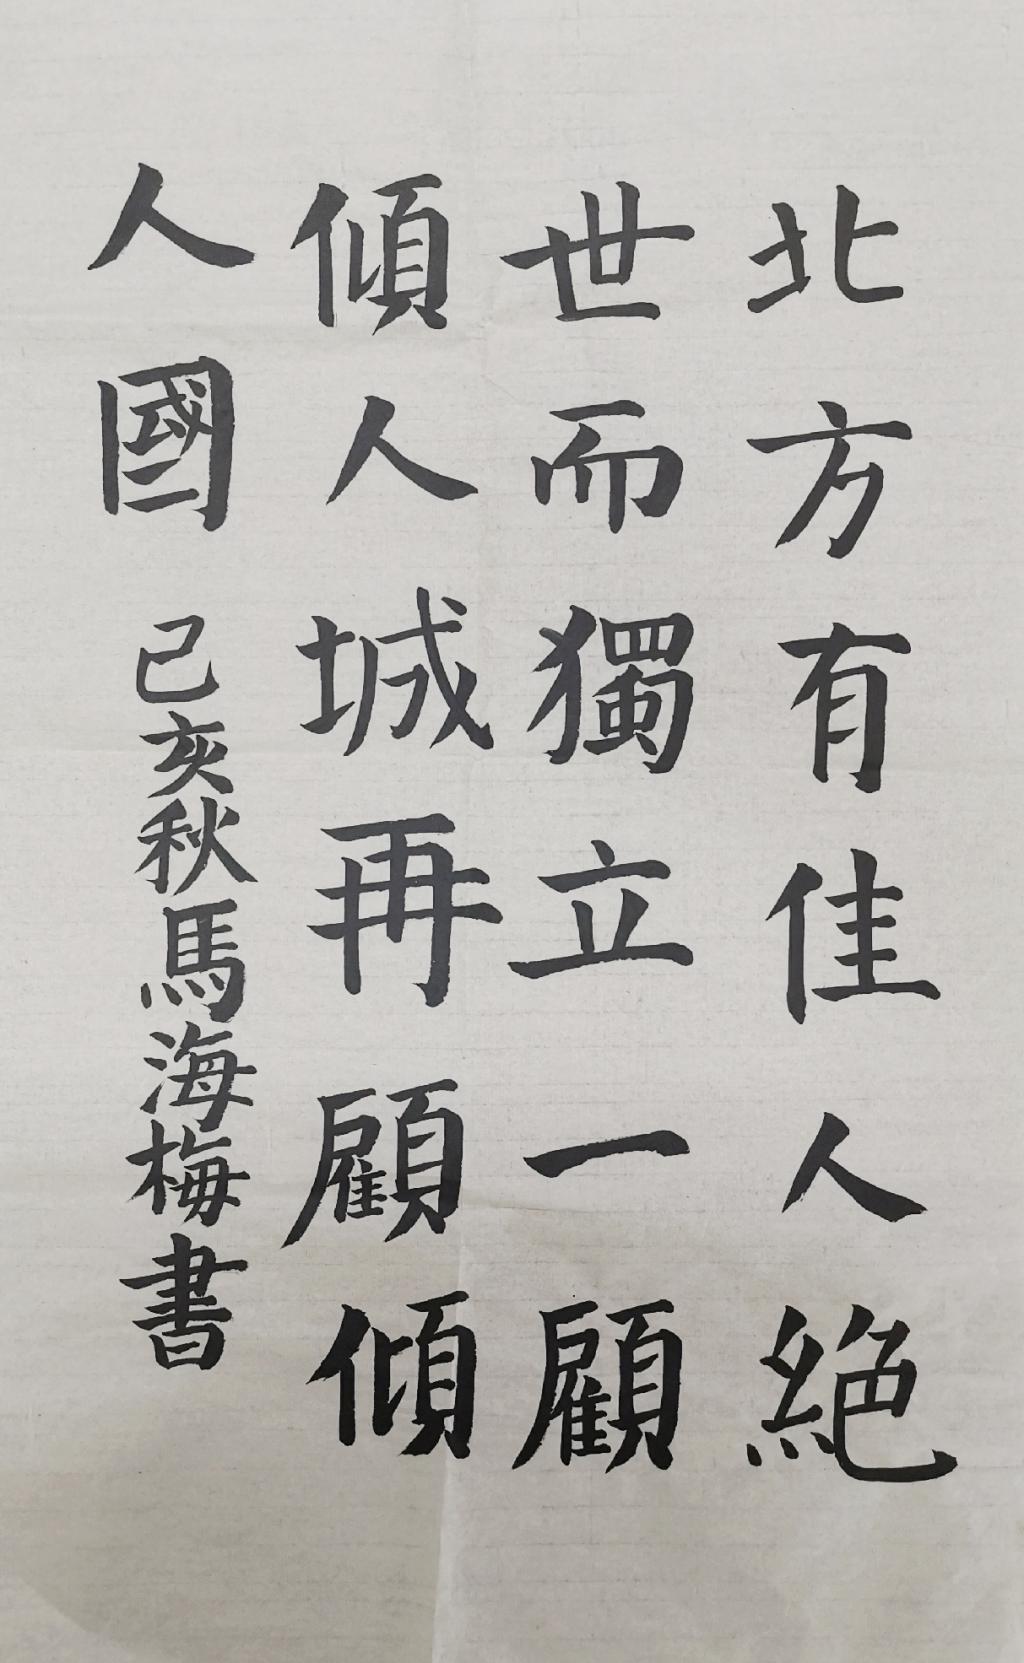 北方有佳人絶
世而獨立一顧
傾人城再顧傾
人國
己亥秋馬海梅書